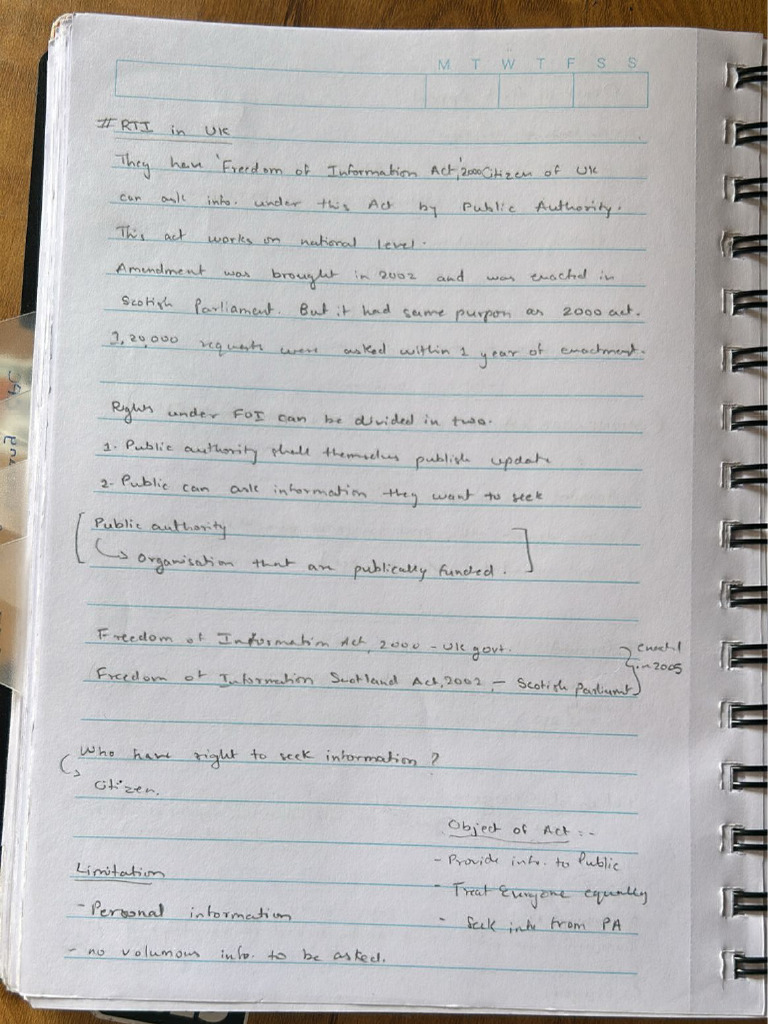 M T W T F S S
# RTI in UK
They have 'Freedom of Information Act,' 2000 Citizen of UK
can ask info. under this Act by Public Authority.
This act works on national level.
Amendment was brought in 2002 and was enacted in
Scotish Parliament. But it had same purpose as 2000 act.
1,20,000 requests were asked within 1 year of enactment.
Rights under FOI can be divided in two.
1. Public authority shall themselves publish update
2. Public can ask information they want to seek
Public authority
Organisation that are publically funded.
Freedom of Information Act, 2000 - UK govt.
Freedom of Information Scotland Act, 2002, - Scotish Parliament
enacted
in 2005
Who have right to seek information ?
Citizen.
Object of Act :-
- Provide info. to Public
- Treat Everyone equally
- Seek info from PA
Limitation
- Personal information
- no volumous info. to be asked.